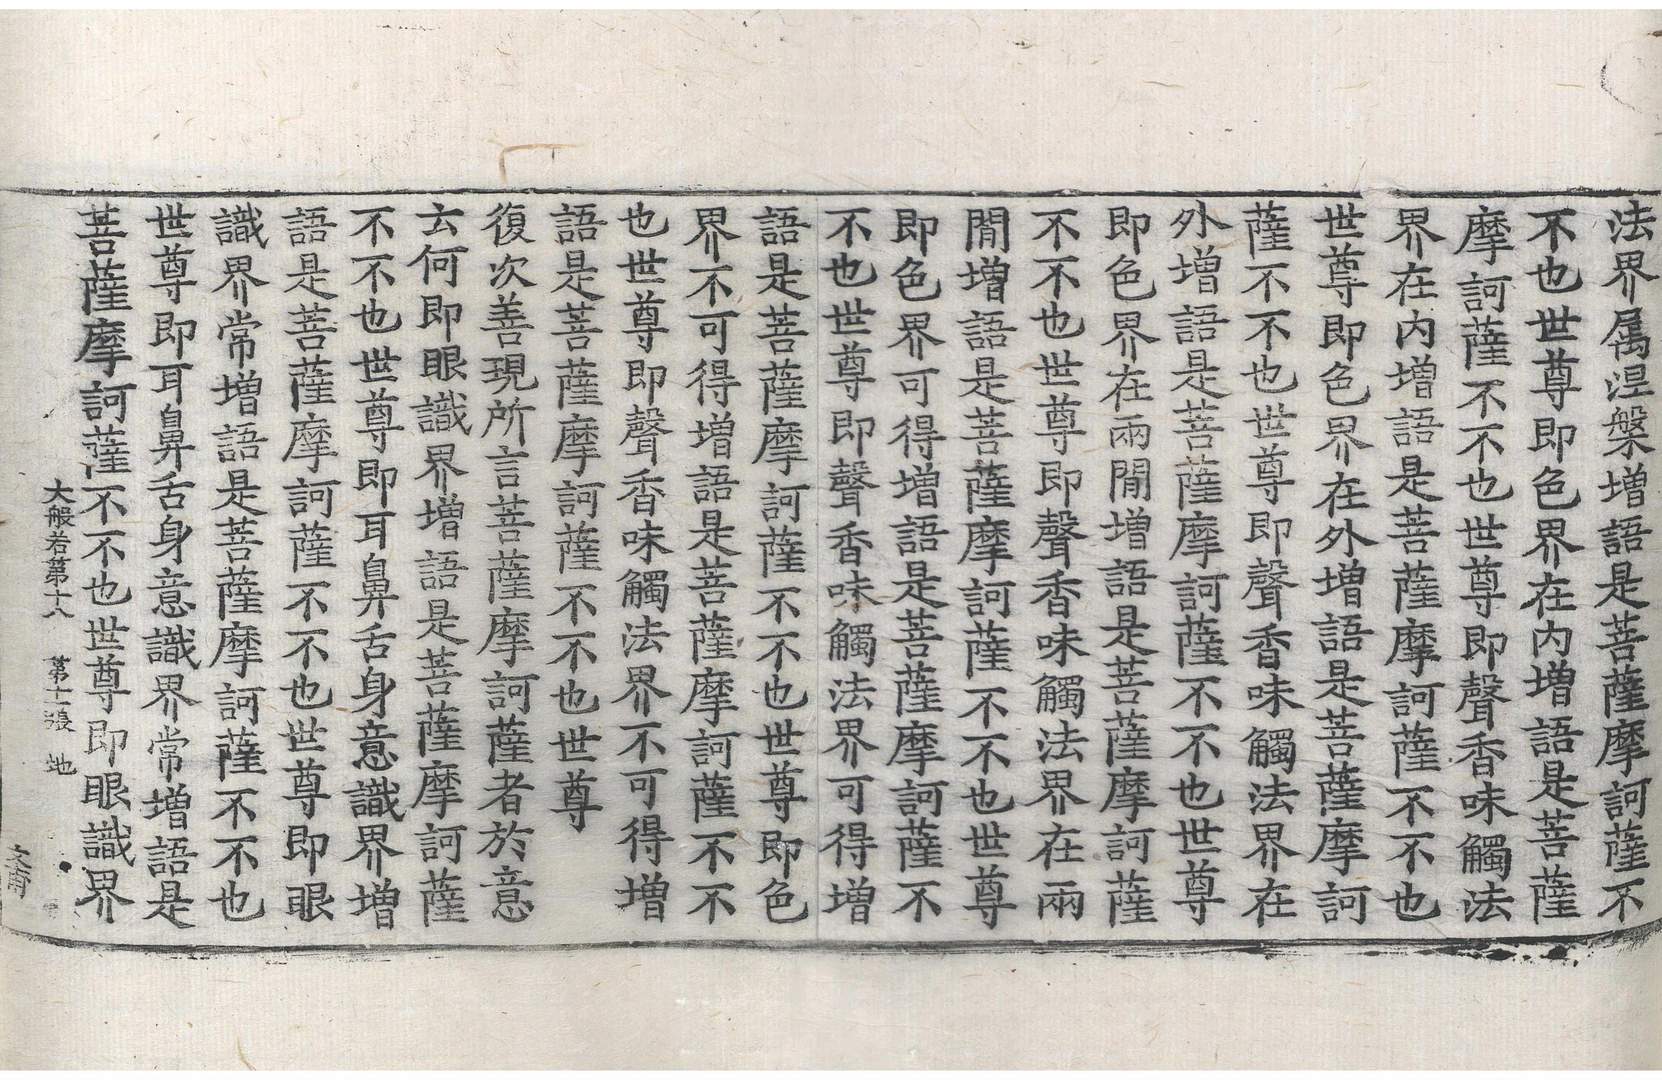 法界属涅槃增語是菩薩摩訶薩不
不也世尊即色界在内增語是菩薩
摩訶薩不不也世尊即聲香味觸法
界在内增語是菩薩摩訶薩不不也
世尊即色界在外增語是菩薩摩訶
薩不不也世尊即聲香味觸法界在
外增語是菩薩摩訶薩不不也世尊
即色界在兩閒增語是菩薩摩訶薩
不不也世尊即聲香味觸法界在兩
閒增語是菩薩摩訶薩不不也世尊
即色界可得增語是菩薩摩訶薩不
不也世尊即聲香味觸法界可得增
語是菩薩摩訶薩不不也世尊即色
界不可得增語是菩薩摩訶薩不不
也世尊即聲香味觸法界不可得增
語是菩薩摩訶薩不不也世尊
復次善現所言菩薩摩訶薩者於意
云何即眼識界增語是菩薩摩訶薩
不不也世尊即耳鼻舌身意識界增
語是菩薩摩訶薩不不也世尊即眼
識界常增語是菩薩摩訶薩不不也
世尊即耳鼻舌身意識界常增語是
菩薩摩訶薩不不也世尊即眼識界
大般若第十八 第十二張 地